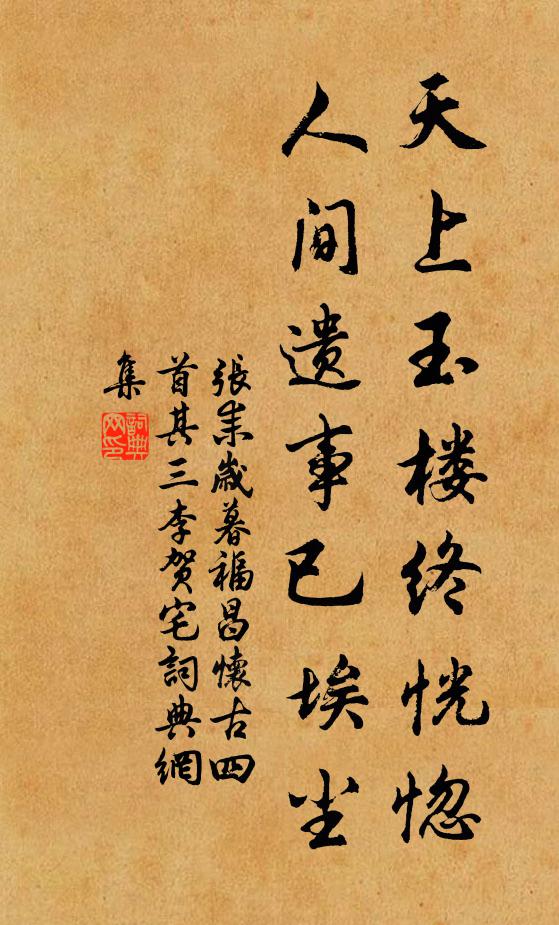 天上玉楼终恍惚
人间遗事已埃尘
張耒歲暮福昌懷古四
首其三李贺宅詞典網
集
詞典
网印